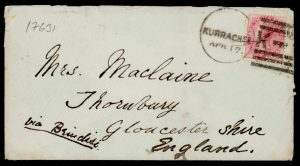 (763)
KURRACHEE
APR 12
Mrs. Maclaine
Thornbury
Gloucester shire
via Brindisi.
England.